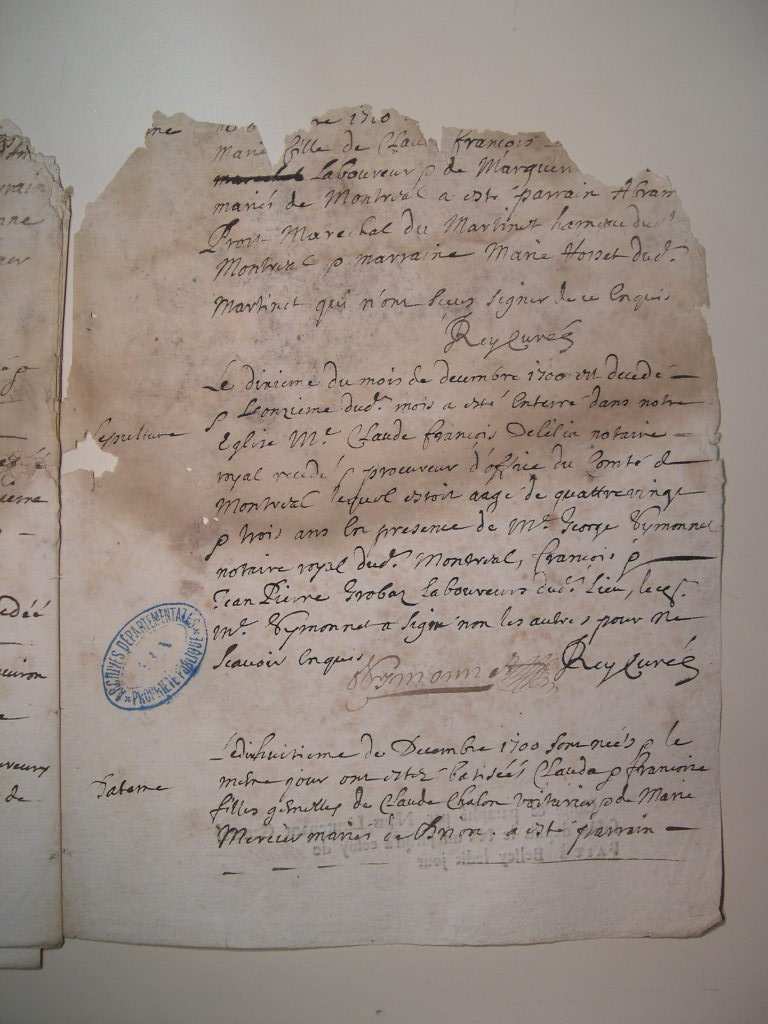 me re 1710
Marie fille de Claude francois
Laboureur & de Marguer
mariés de Montreal a esté parrain Abram
Prost Marechal du Martinet hameau dud.
Montreal & marraine Marie Hosset dud.
Martinet qui n'ont sceus signer de ce Enquis
Rey Curé
Le dixieme du mois de decembre 1700 est decedé
Sepulture
& L'onzieme dud. mois a esté Enterré dans notre
Eglise Me. Claude françois Delélia notaire
royal & procureur d'office du Comté de
Montreal lequel estoit aagé de quattre vingt
& trois ans En presence de Me. George Eymonnet
notaire royal dud. Montreal, françois &
Jean Pierre Grobaz Laboureurs dud. Lieu,
Me. Eymonnet a signé non les autres pour ne
Scavoir Enquis Eymonnet Rey Curé
ARCHIVES DÉPARTEMENTALES
PROPRIÉTÉ PUBLIQUE
L'edixhuitieme de Decembre 1700 sont nées & le
Bateme
meme jour ont estez batisées Clauda & francoise
filles gemelles de Claude Chalon voiturier & de Marie
Mercier mariés de Brion. a esté parrain